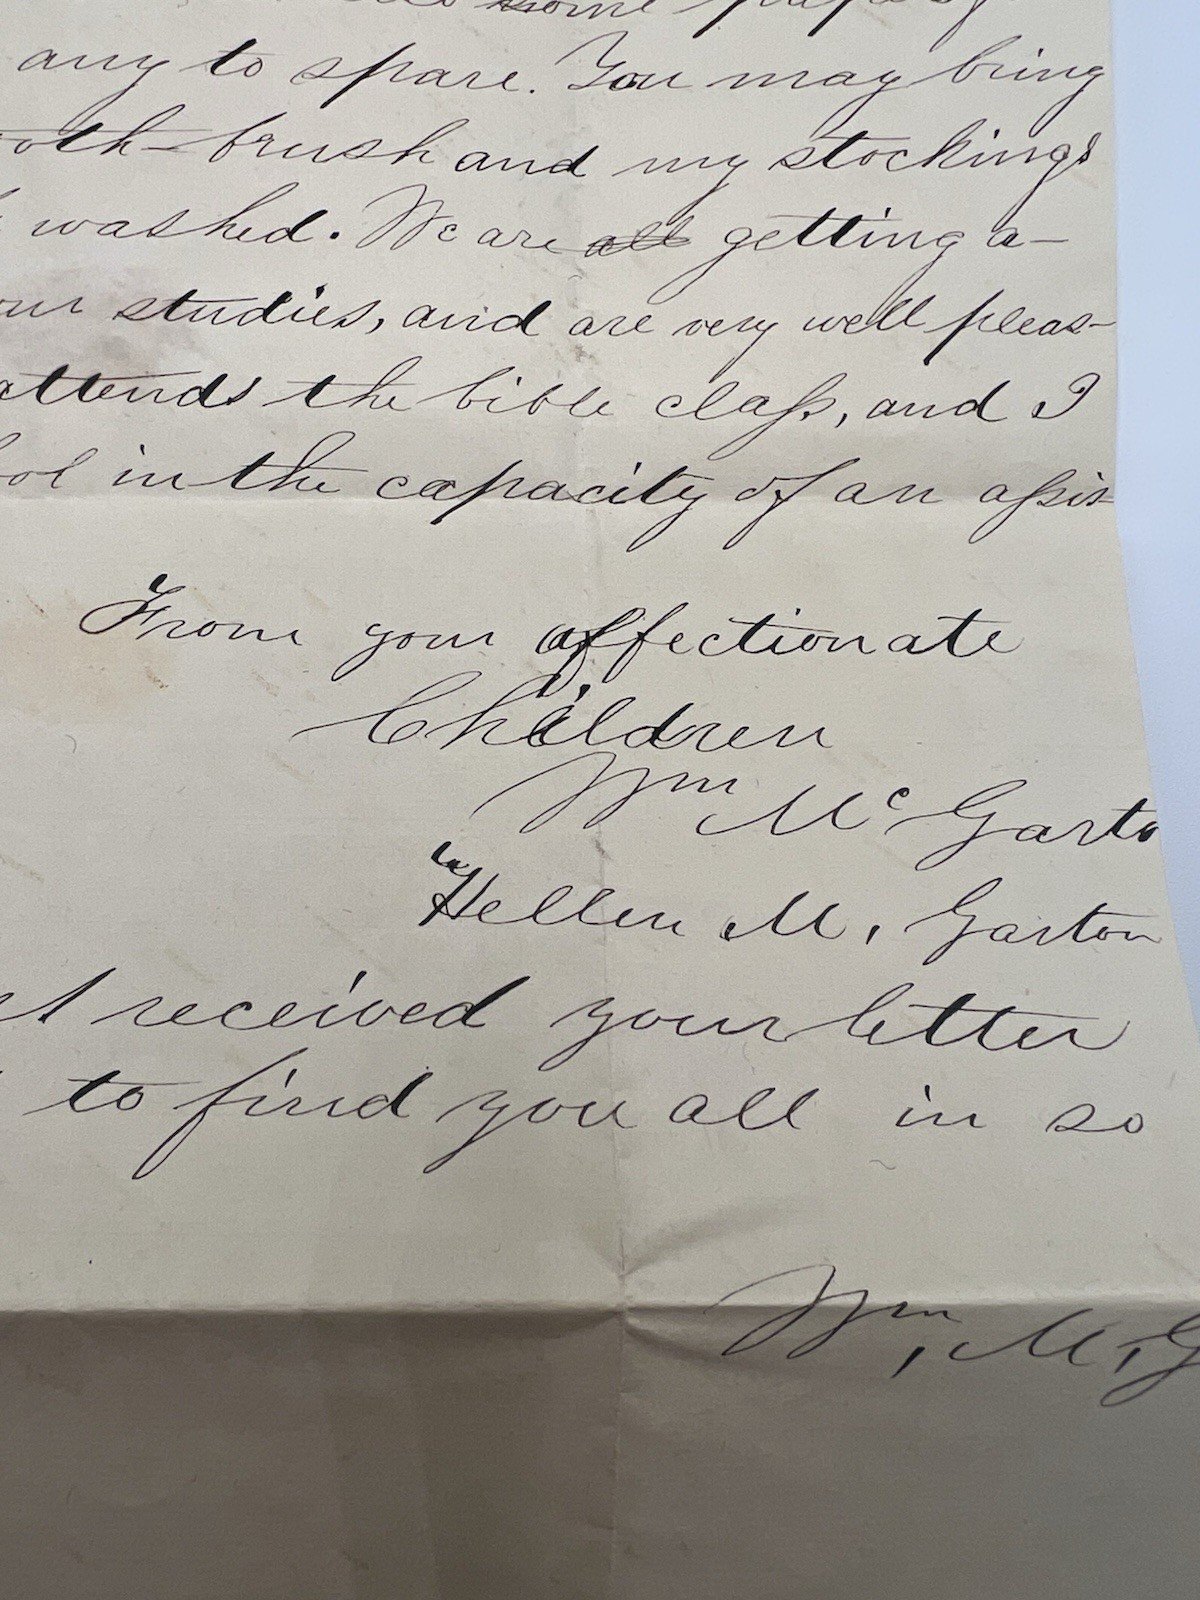 some
any to spare. You may bring
oth-brush and my stockings
washed. We are all getting a-
our studies, and are very well pleas-
attends the bible claſs, and I
ool in the capacity of an aſsist
From your affectionate
Children
Wm McGarto
Hellen M. Garton
received your letter
to find you all in so
Wm, M, G